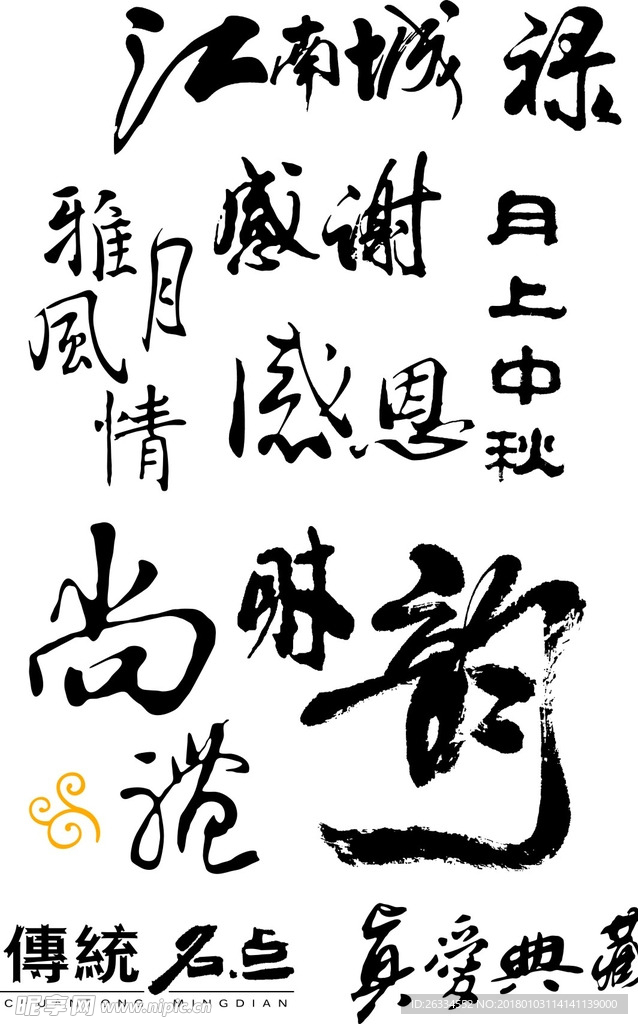 江南城 禄
感谢
雅風
月
情
月上中秋
感恩
尚
财
韵
禮
傳統名点
CHUANTONG MINGDIAN
真愛典藏
昵享网 www.nipic.cn
ID:26334552 NO:20180103114141139000